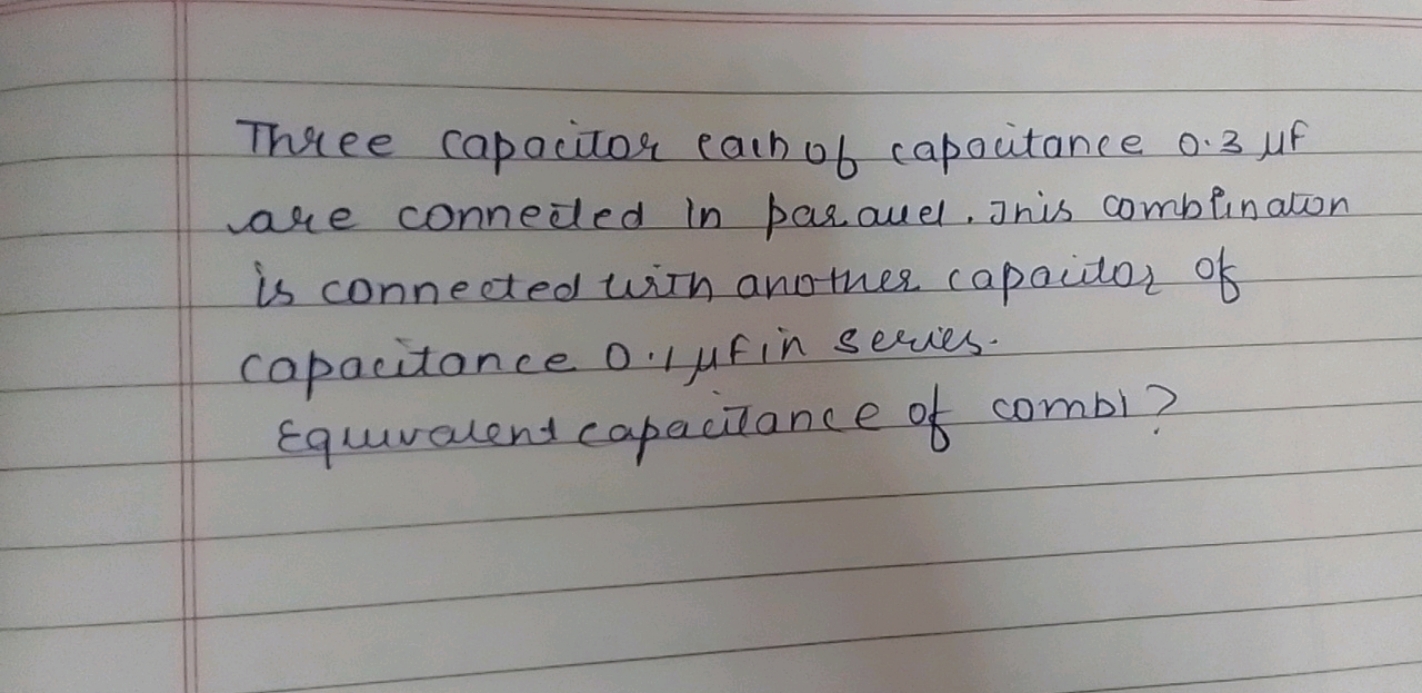 Three capacitor each of capacitance 0.3 μF
are connected in parallel. This combination
is connected with another capacitor of
capacitance 0.1 μF in series.
Equivalent capacitance of combi?